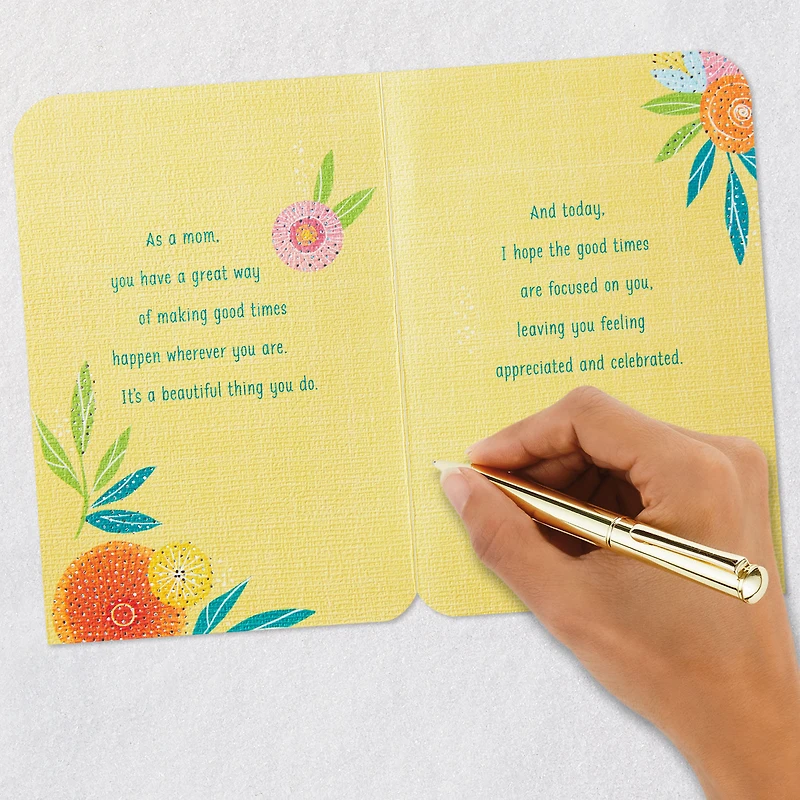 As a mom,
you have a great way
of making good times
happen wherever you are.
It's a beautiful thing you do.
And today,
I hope the good times
are focused on you,
leaving you feeling
appreciated and celebrated.